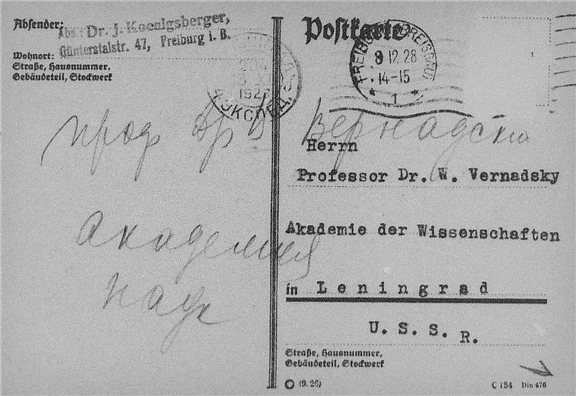 Absender:
Abs.: Dr. J. Koenigsberger,
Günterstalstr. 47, Freiburg i. B.
Wohnort:
Straße, Hausnummer,
Gebäudeteil, Stockwerk
192
ЭКСПЕД.
проф Др В Вернадски
Академия
Наук
Postkarte
FREIBURG (BREISGAU)
8 12 28
14-15
* 1 *
Herrn
Professor Dr. W. Vernadsky
Akademie der Wissenschaften
in Leningrad
U.S.S.R.
Straße, Hausnummer,
Gebäudeteil, Stockwerk
(9.26)
C 154 Din 476